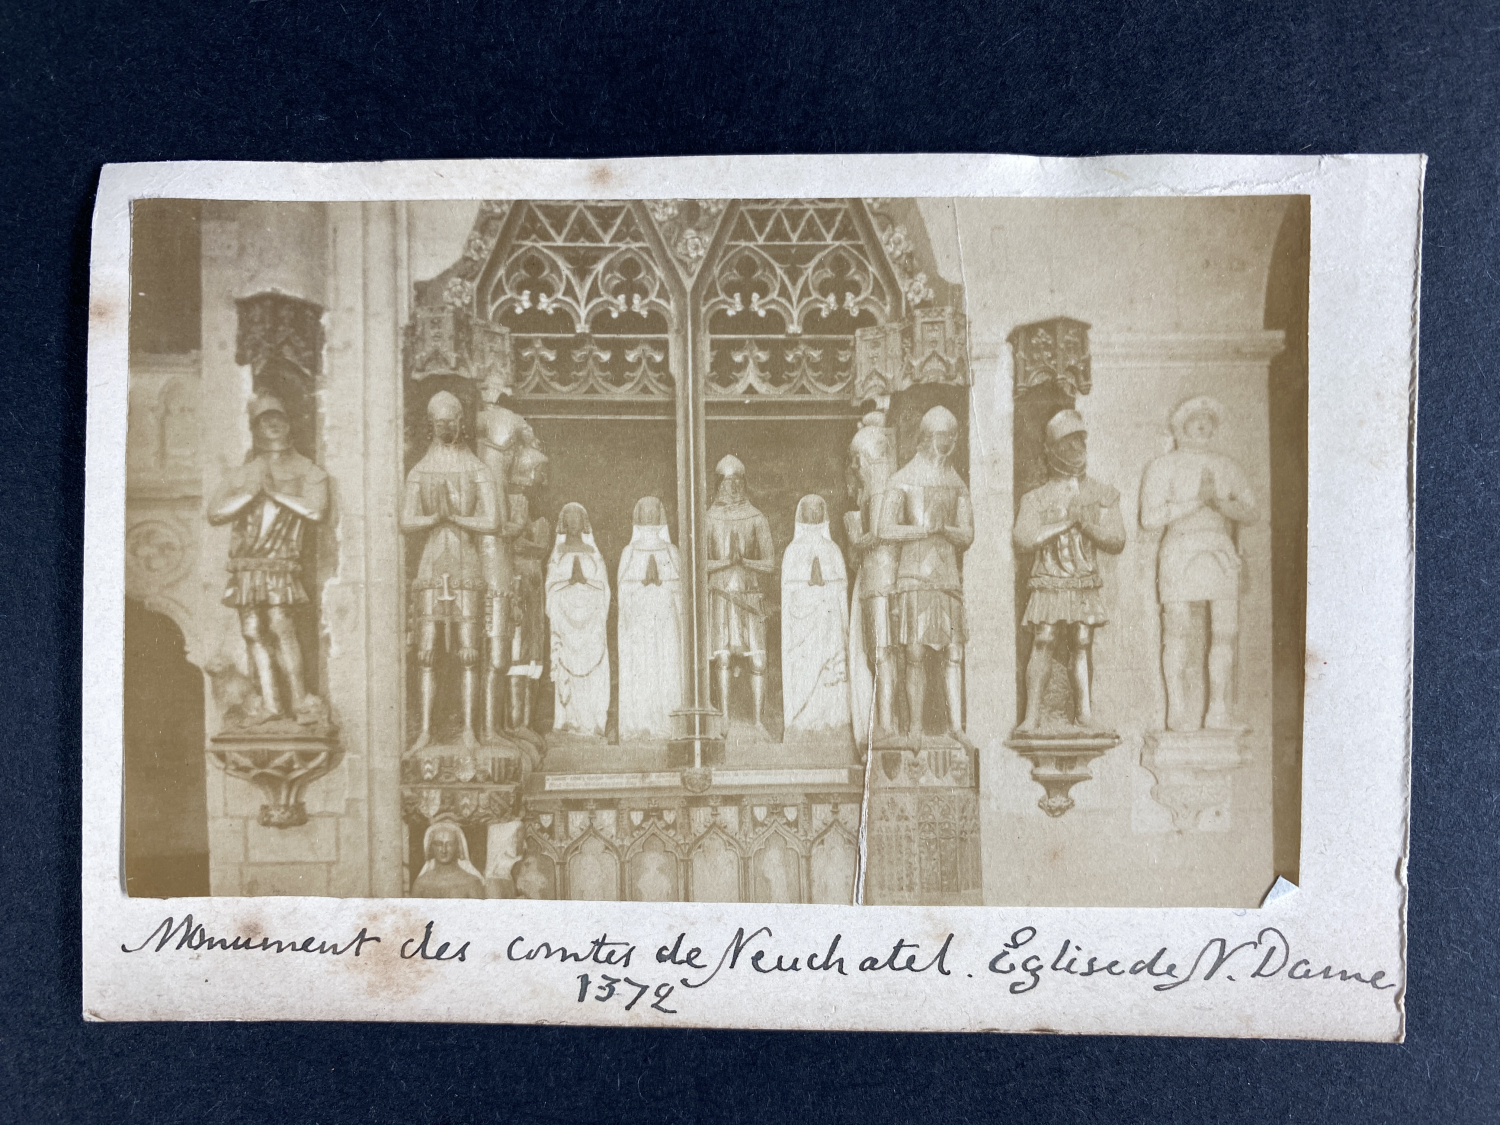 Monument des comtes de Neuchatel. Église de N. Dame
1372